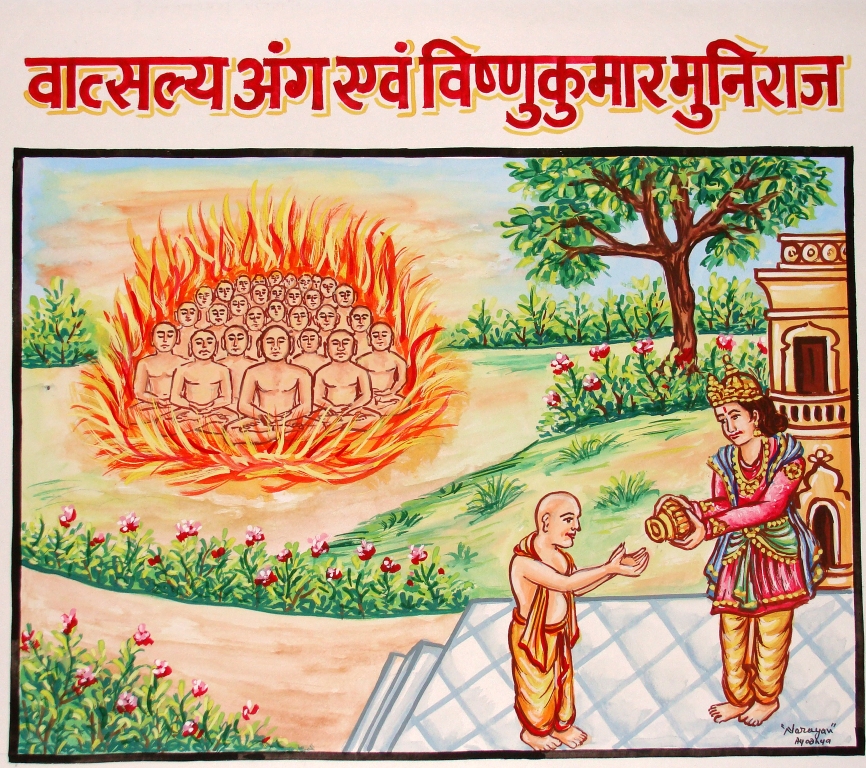 वात्सल्य अंग एवं विष्णुकुमार मुनिराज
"Narayan"
Ayodhya